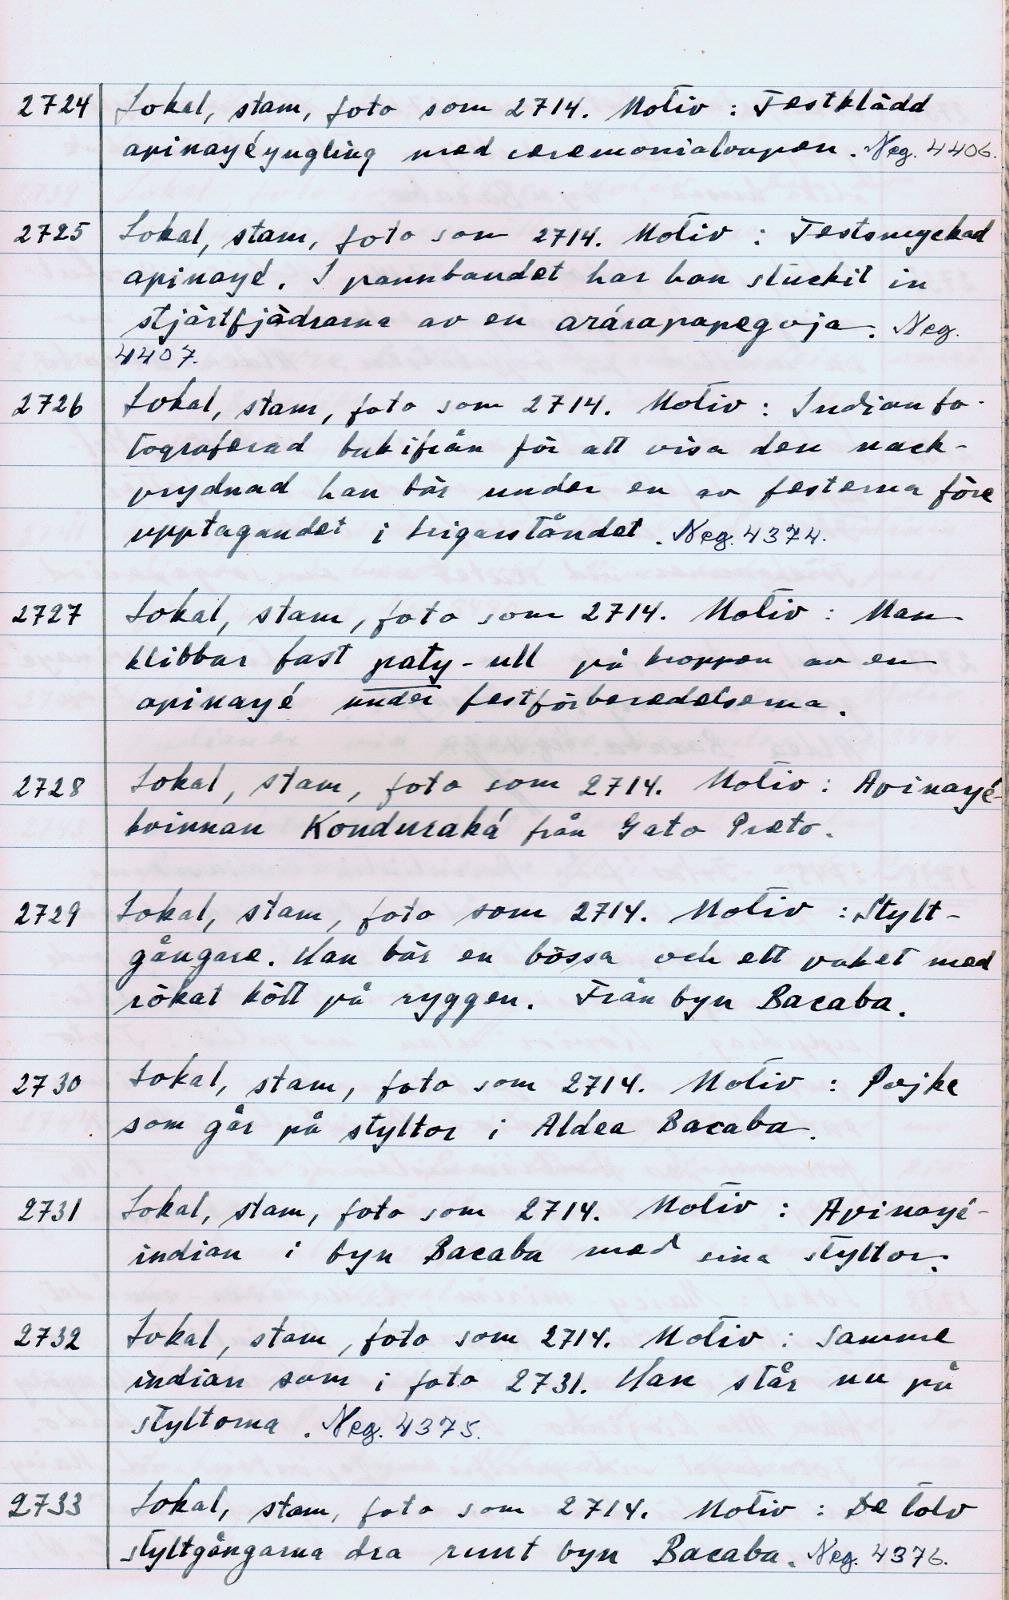 2724 Lokal, stam, foto som 2714. Motiv : Festklädd
apinayéyngling med ceremonialvapen. Neg. 4406.
2725 Lokal, stam, foto som 2714. Motiv : Festsmyckad
apinayé. I pannbandet har han stuckit in
stjärtfjädrarna av en arárapapegoja. Neg.
4407.
2726 Lokal, stam, foto som 2714. Motiv : Indian fo-
tograferad bakifrån för att visa den nack-
prydnad han bär under en av festerna före
upptagandet i krigarståndet. Neg. 4374.
2727 Lokal, stam, foto som 2714. Motiv : Man
klibbar fast paty-ull på kroppen av en
apinayé under festförberedelserna.
2728 Lokal, stam, foto som 2714. Motiv : Apinayé-
kvinnan Konduraká från Gato Preto.
2729 Lokal, stam, foto som 2714. Motiv : Stylt-
gångare. Han bär en bössa och ett paket med
rökat kött på ryggen. Från byn Bacaba.
2730 Lokal, stam, foto som 2714. Motiv : Pojke
som går på styltor i Aldea Bacaba.
2731 Lokal, stam, foto som 2714. Motiv : Apinayé-
indian i byn Bacaba med sina styltor.
2732 Lokal, stam, foto som 2714. Motiv : Samme
indian som i foto 2731. Han står nu på
styltorna. Neg. 4375.
2733 Lokal, stam, foto som 2714. Motiv : De tolv
styltgångarna dra runt byn Bacaba. Neg. 4376.